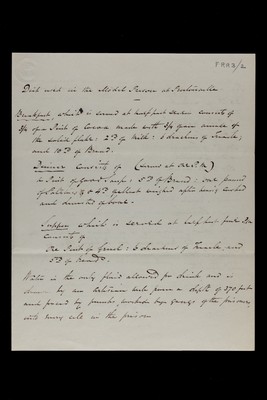 FRA3/2
Diet used in the Model Prison at Pentonville
Breakfast which is served at half past seven consists of
3/4 of a Pint of Cocoa made with 3/4 ounce of
the solid flake: 2 oz of Milk: 6 drachms of Treacle,
and 10 oz of Bread.
Dinner consists of (served at One P.M)
1/2 Pint of Good Soup: 5 oz of Bread: one pound
of Potatoes & 4 oz of Meat weighed after being cooked
and divested of bone.
Supper which is served at half past five
consists of
One Pint of Gruel: 6 drachms of Treacle and
5 oz of Bread.
Water is the only fluid allowed for drink and is
by an Artesian well from a depth of 370 feet
and forced by pumps, worked by gangs of the prisoners,
into every cell in the prison